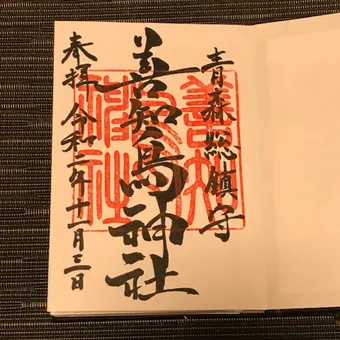 青森総鎮守
善知鳥神社
奉拝 令和二年十一月三日